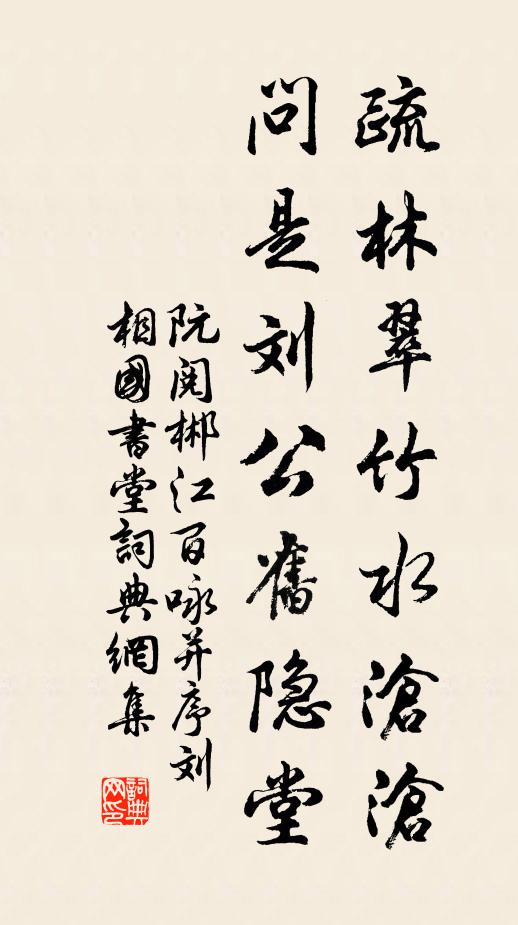 疏林翠竹水滄滄
问是刘公舊隐堂
阮阅郴江百咏并序刘
相國書堂詞典網集
詞典网印